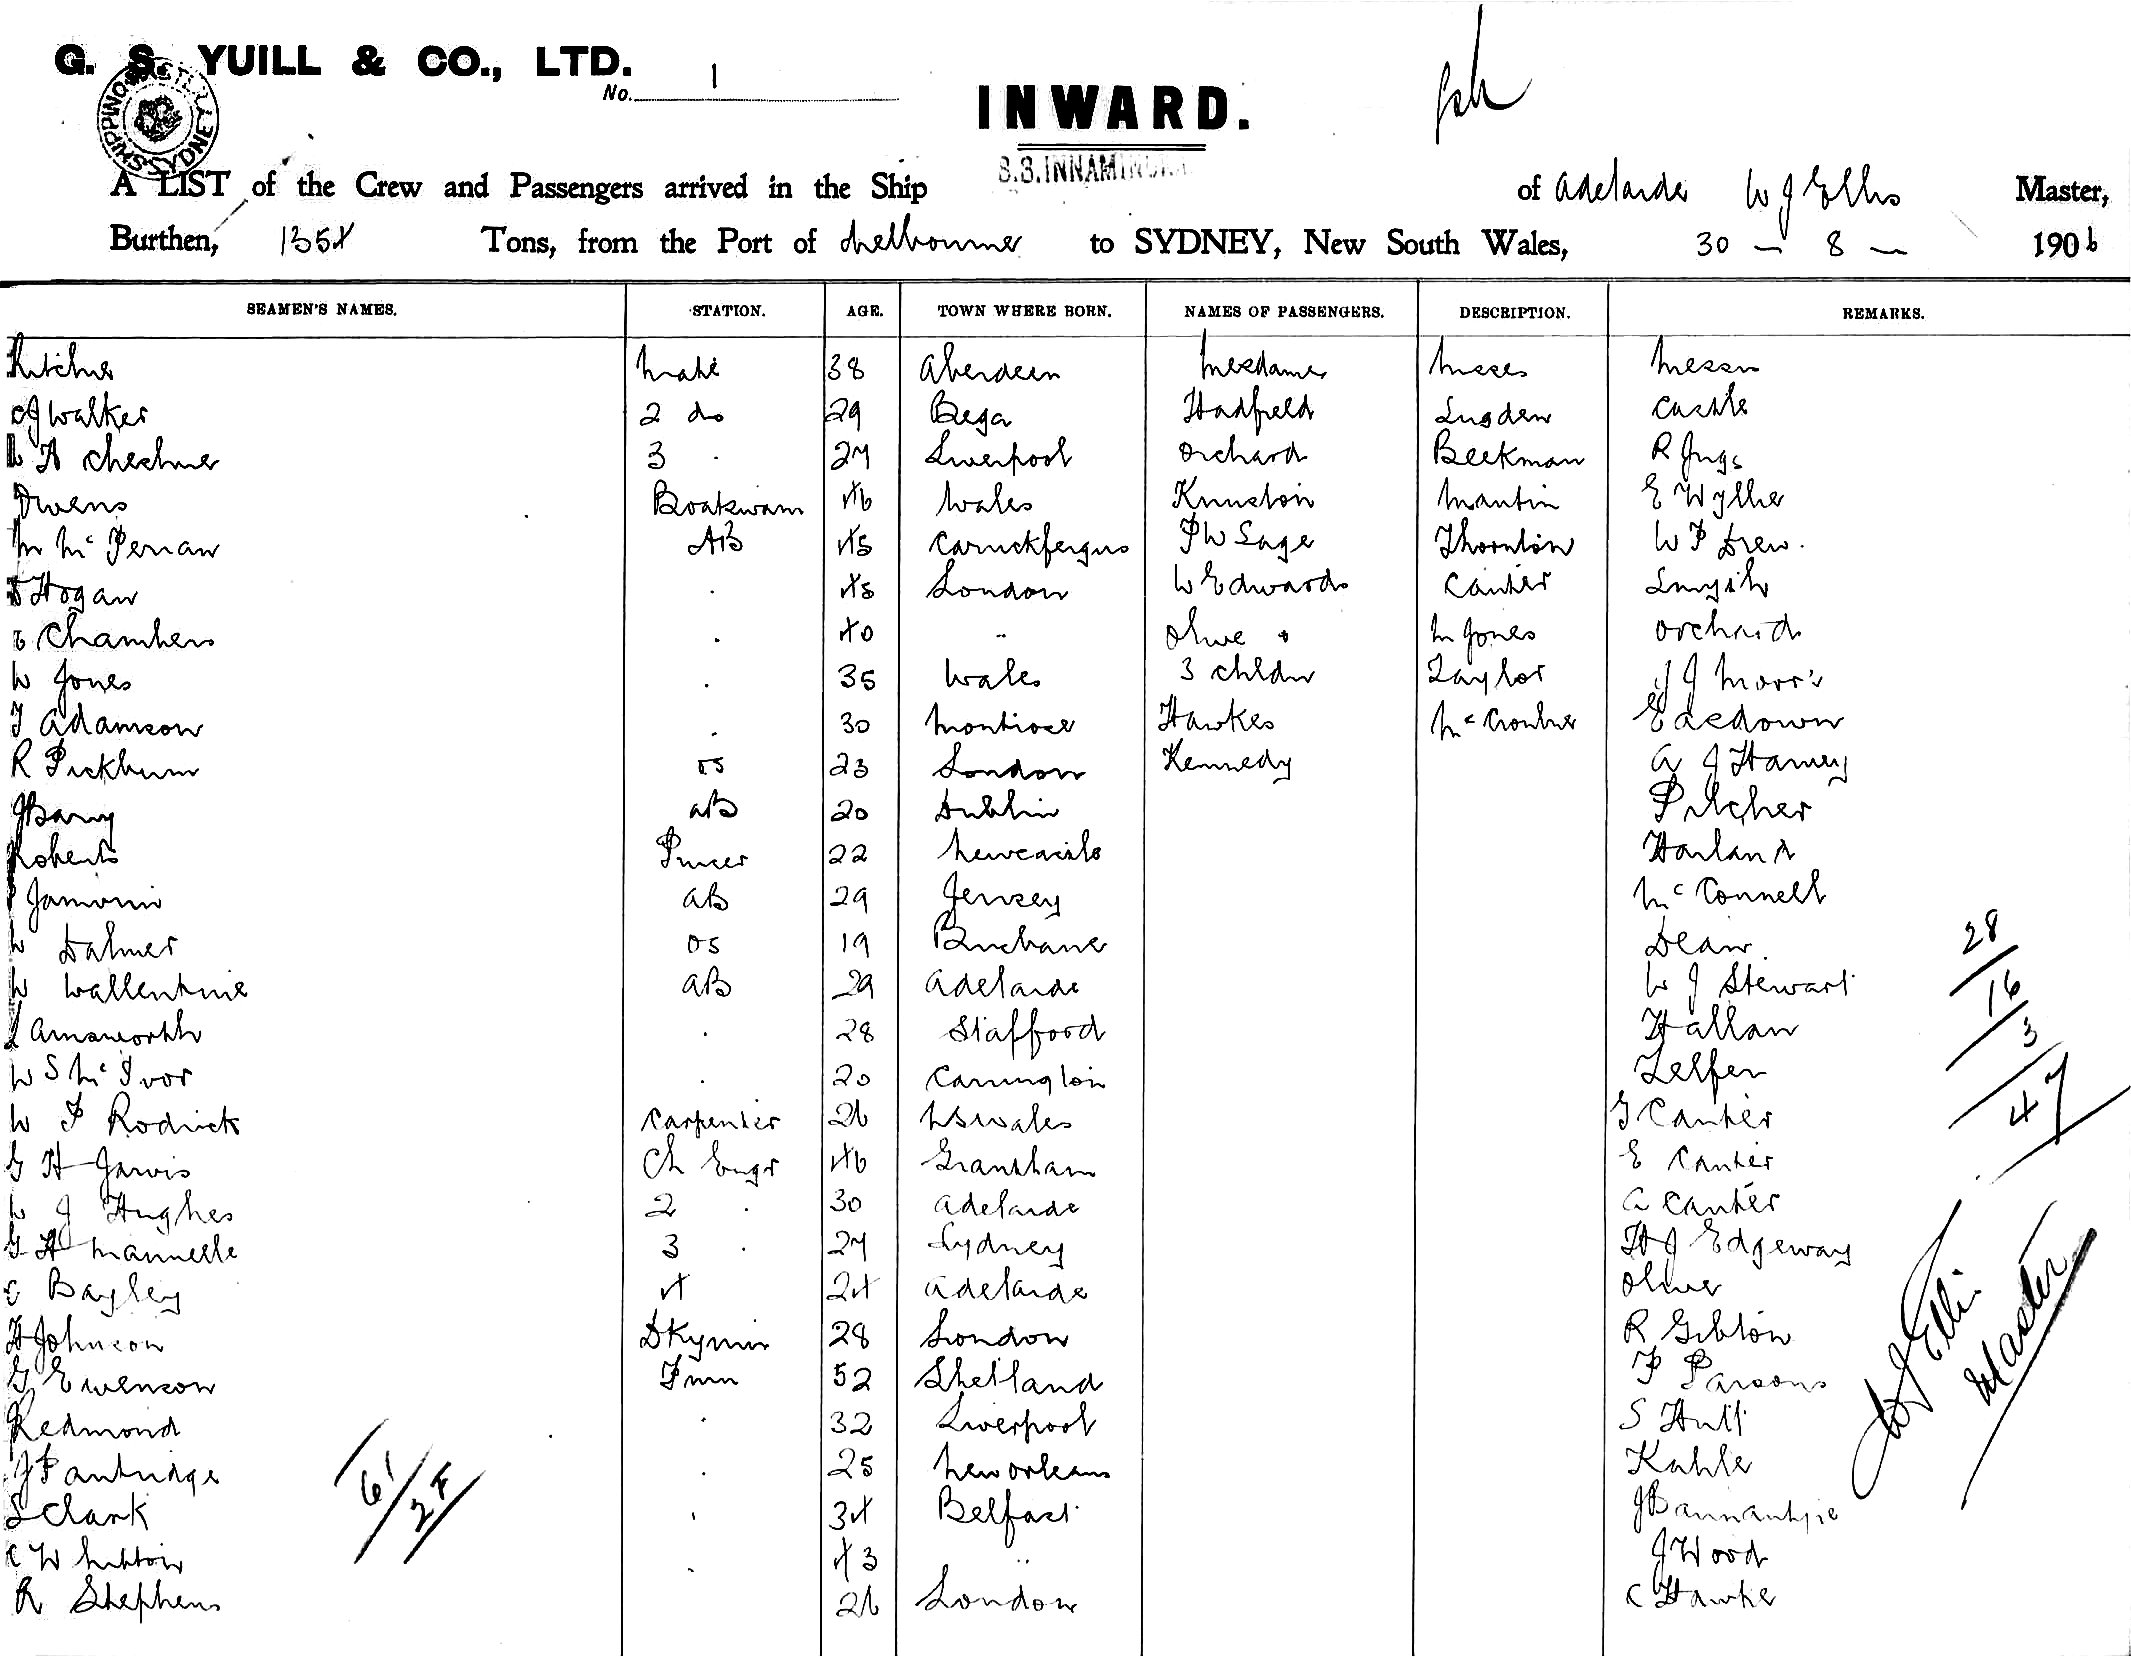 G. S. YUILL & CO., LTD.
No. 1
INWARD.
SHIPPING MASTER SYDNEY
S.S. INNAMINCKA
A LIST of the Crew and Passengers arrived in the Ship of Adelaide W J Ellis Master,
Burthen, 1354 Tons, from the Port of Melbourne to SYDNEY, New South Wales, 30 – 8 – 1906
SEAMEN'S NAMES. STATION. AGE. TOWN WHERE BORN. NAMES OF PASSENGERS. DESCRIPTION. REMARKS.
Mate 38 Aberdeen Mesdames Misses Messrs
Walker 2 do 29 Bega Hadfield Lugden Castle
3 27 Liverpool Orchard Beekman R
Owens Boatswain 46 Wales Knuston Martin E Wyllie
AB 45 Carrickfergus P W Sage Thornton W P Drew.
Hogan 45 London W Edwards Canter Smyth
Chambers 40 " Olive " M Jones Orchard
W Jones 35 Wales 3 chldn Taylor J J Moore
T Adamson 30 Montrose Hawkes Easdown
R Pickburn OS 23 London Kennedy A J Harvey
J Barry AB 20 Dublin Pilcher
Roberts 22 Newcastle Harland
AB 29 Jersey McConnell
W OS 19 Brisbane Dean
W Wallentine AB 29 Adelaide W J Stewart
Ainsworth 28 Stafford Hallan
W S McIvor 20 Carrington Telfer
W P Rodrick Carpenter 26 NSWales G Canter
G H Jarvis Ch Engr 46 Grantham E Canter
W J Hughes 2 30 Adelaide A Canter
G H Mannelle 3 27 Sydney H J Edgeway
C Bayley 4 24 Adelaide Oliver
H Johnson Dkymn 28 London R Gibton
G Ewenson Fmn 52 Shetland P Parsons
Redmond 32 Liverpool S Hull
J Partridge 25 New Orleans Kahle
S Clark 34 Belfast
C Whitton 43 " J Wood
R Stephens 26 London C Hawke
28
16
3
47
W J Ellis
Master